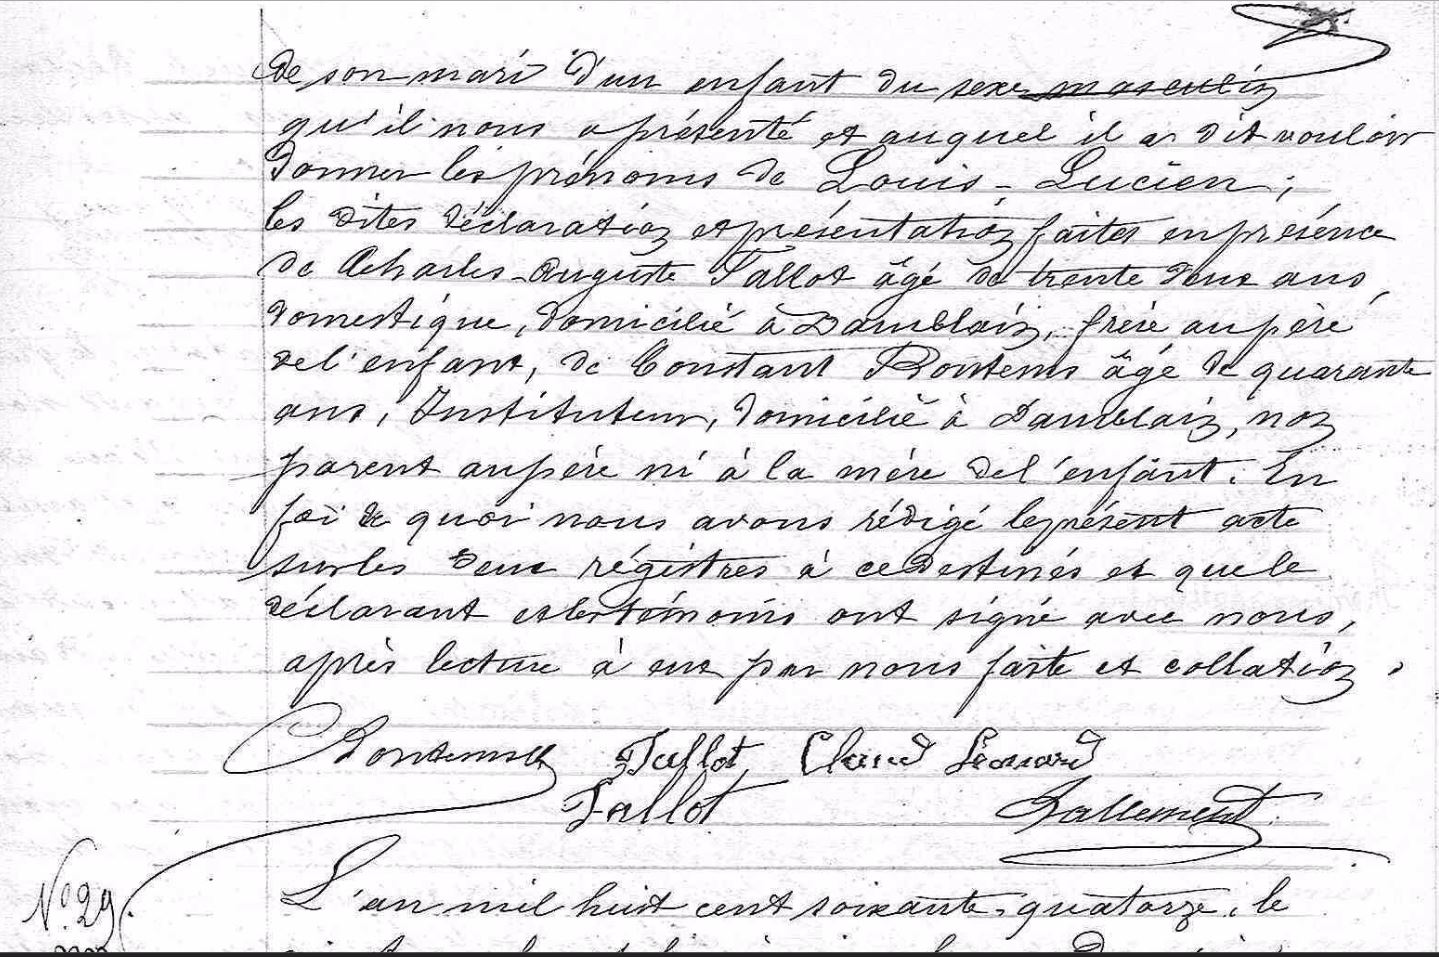 de son mari d'un enfant du sexe masculin
qu'il nous a présenté et auquel il a dit vouloir
donner les prénoms de Louis-Lucien ;
les dites déclaration et présentation faites en présence
de Charles-Auguste Tallot âgé de trente deux ans,
domestique, domicilié à Damblain, frère au père
de l'enfant, de Constant Bontems âgé de quarante
ans, Instituteur, domicilié à Damblain, non
parent au père ni à la mère de l'enfant. En
foi de quoi nous avons rédigé le présent acte
sur les deux régistres à ce destinés et que le
déclarant et les témoins ont signé avec nous,
après lecture à eux par nous faite et collation.
Bontems Tallot Claud Léonard
Tallot Lallement
N° 29. L'an mil huit cent soixante-quatorze, le